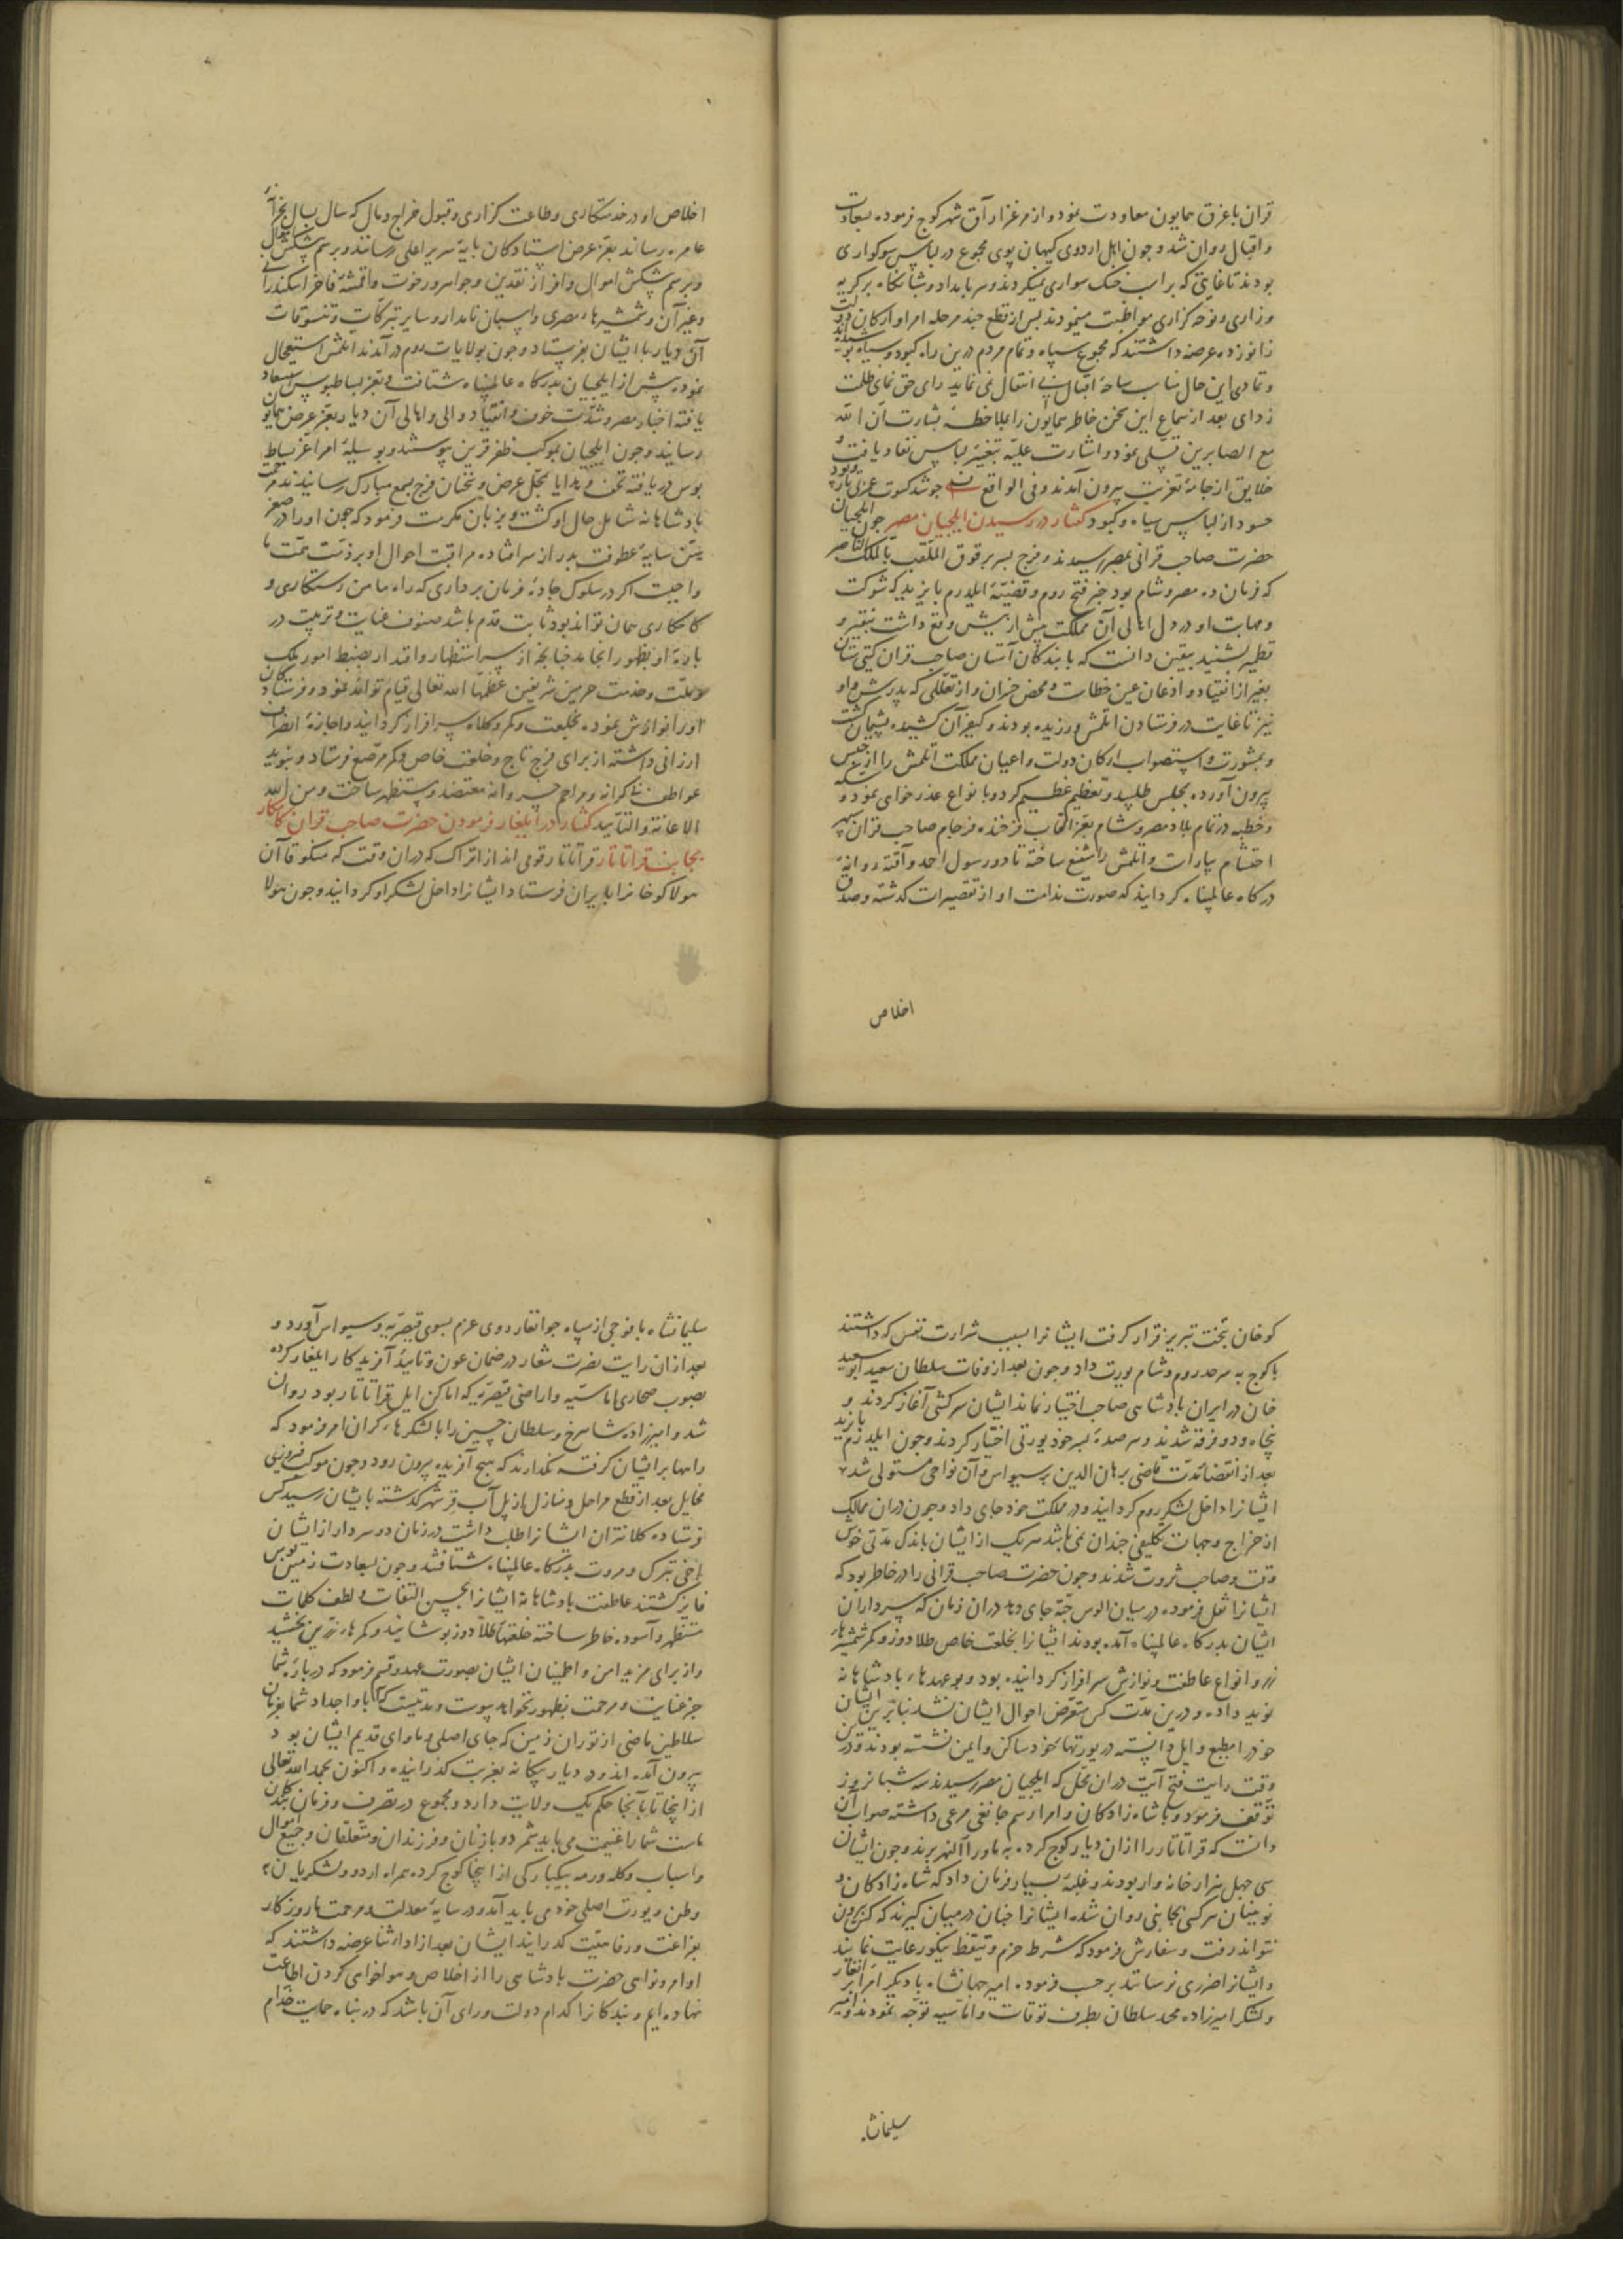 قران باغرق همایون معاودت نمود و از مرغزار آق شهر کوچ فرموده بسعادت
و اقبال روان شد و جون اهل اردوی کیهان پوی مجموع در لباس سوکواری
بودند تا غایتی که بر اسب خنک سواری نمیکردند و هر بامداد و شبانکاه بر کریه
و زاری و نوحه کزاری مواظبت مینمودند پس از قطع چند مرحله امرا و ارکان دولت
زانو زده عرضه داشتند که مجموع سپاه و تمام مردم درین راه کبود و سیاه پوشیده‌اند
و تمادی این حال مناسب ساحهٔ اقبال بی انتقال نمی نماید رای حق نمای ظلمت
زدای بعد از سماع این سخن خاطر همایون را بملاحظهٔ بشارت ان الله
مع الصابرین تسلی نمود و اشارت علیّه بتغییر لباس نفاد یافت و
خلایق از جامهٔ تعزیت بیرون آمدند و فی الواقع
حسود از لباس سیاه و کبود کفتار در رسیدن ایلچیان مصر جون ایلچیان
حضرت صاحب قرانی بمصر رسیدند و فرج پسر برقوق الملقب بالملک الناصر
که فرمان ده مصر و شام بود خبر فتح روم و قضیّهٔ ایلدرم بایزید که شوکت
و مهابت او در دل اهالی آن مملکت بیش از بیش وقع داشت بنقیر و
قطمیر بشنید بیقین دانست که با بندکان آستان صاحب قران کیتی ستان
بغیر از انقیاد و اذعان عین خطاست و محض خسران و از تعللی که پدرش و او
نیز تا غایت در فرستادن اتلمش ورزیده بودند و کیفر آن کشیده پشیمان کشت
و بمشورت و استصواب ارکان دولت و اعیان مملکت اتلمش را از حبس
بیرون آورده بمجلس طلبید و تعظیم عظیم کرد و بانواع عذرخواهی نمود و سکه
و خطبه در تمام بلاد مصر و شام بعزّ القاب فرخنده فرجام صاحب قران سپهر
احتشام بیاراست و اتلمش را شفیع ساخته تا دو رسول احمد و آقته روانهٔ
درکاه عالمپناه کردانید که صورت ندامت او از تقصیرات کذشته و صدق
اخلاص
اخلاص او در خدمتکاری و طاعت کزاری و قبول خراج و مال که سال بسال بخزانهٔ
عامره رساند بعزّ عرض استادکان پایهٔ سریر اعلی رسانند و برسم پیشکش اموال
و برسم پیشکش اموال وافر از نقدین و جواهر و رخوت و اقمشهٔ فاخر اسکندرانی
و غیر آن و شمشیرهاء مصری و اسبان نامدار و سایر تبرکات و تنسوقات
آن دیار با ایشان بفرستاد و جون بولایات روم درآمدند اتلمش استعجال
نموده پیش از ایلچیان بدرکاه عالمپناه شتافت و بعز بساطبوس استسعاد
یافته اخبار مصر و شدّت خوف و انقیاد والی و اهالی آن دیار بعزّ عرض همایون
رسانید و جون ایلچیان بموکب ظفر قرین پیوستند و بوسیلهٔ امرا عز بساط
بوس دریافته تحف و هدایا بمحل عرض و سخنان فرج بسمع مبارک رسانیدند مرحمت
پادشاهانه شامل حال او کشت و بر زبان مکرمت فرمود که چون او را در صغر
سن سایهٔ عطوفت پدر از سر افتاده مراقبت احوال او بر ذمّت همّت ما
واجبست اکر در سلوک جادهٔ فرمان برداری که راه مامن رستکاری و
کامکاری همان تواند بود ثابت قدم باشد صنوف عنایت و تربیت در
بارهٔ او بظهور انجامد چنانچه از سر استظهار و اقتدار بضبط امور ملک
و ملّت و خدمت حرمین شریفین عظمهما الله تعالی قیام تواند نمود و فرستادکان
او را نوازش نموده بخلعت و کمر و کلاه سرافراز کردانید و اجازهٔ انصراف
ارزانی داشته از برای فرج تاج و خلعت خاص و کمر مرصّع فرستاد و بنوید
عواطف بی کرانه و مراحم خسروانه معتضد و مستظهر ساخت و من الله
الاعانة و التایید کفتار در ایلغار فرمودن حضرت صاحب قران کامکار
بجانب قراتاتار قراتاتار قومی اند از اتراک که در ان وقت که منکوقاآن
هولاکو خانرا بایران فرستاد ایشانرا داخل لشکر او کردانید و جون هولا
کوخان بتخت تبریز قرار کرفت ایشانرا بسبب شرارت نفس که داشتند
با کوچ به سرحد روم و شام یورت داد و جون بعد از وفات سلطان سعید ابوسعید
خان در ایران پادشاهی صاحب اختیار نماند ایشان سرکشی آغاز کردند و
پنجاه و دو فرقه شدند و هر صدهٔ بسر خود یورتی اختیار کردند و جون ایلدرم بایزید
بعد از انقضاء مدت قاضی برهان الدین بر سیواس و آن نواحی مستولی شد
ایشانرا داخل لشکر روم کردانید و در مملکت خود جای داد و جون دران ممالک
از خراج و جهات تکلیفی جندان نمی باشد هر یک از ایشان باندک مدّتی خوش
وقت و صاحب ثروت شدند و جون حضرت صاحب قرانی را در خاطر بود که
ایشانرا نقل فرموده در میان الوس جته جای دهد دران زمان که سرداران
ایشان بدرکاه عالمپناه آمده بودند ایشانرا بخلعت خاص طلادوز و کمر شمشیرهاء
زر و انواع عاطفت و نوازش سرافراز کردانیده بود و بوعدهاء پادشاهانه
نوید داده و درین مدّت کس متعرّض احوال ایشان نشد بنابرین ایشان
خود را مطیع و ایل دانسته در یورتهای خود ساکن و ایمن نشسته بودند و درین
وقت رایت فتح آیت دران محلّ که ایلچیان مصر رسیدند سه شبانروز
توقف فرمود و با شاه زادکان و امرا رسم جانغی مرعی داشته صواب آن
دانست که قراتاتار را ازان دیار کوچ کرده به ماوراالنهر برند و جون ایشان
سی چهل هزار خانه وار بودند و غلبهٔ بسیار فرمان داد که شاه زادکان و
نوینان هر کس بجانبی روان شده ایشانرا چنان درمیان کیرند که کس بیرون
نتواند رفت و سفارش فرمود که شرط حزم و تیقظ نیکو رعایت نمایند
و ایشانرا ضرری نرسانند بر حسب فرموده امیر جهانشاه با دیکر امرا برانغار
و لشکر امیرزاده محمد سلطان بطرف توقات و اماسیه توجّه نمودند و امیر
سلیمانشاه
سلیمانشاه با فوجی از سپاه جوانغار روی عزم بسوی قیصریّه و سیواس آورد و
بعد ازان رایت نصرت شعار در ضمان عون و تایید آفریدکار ایلغار کرده
بصوب صحاری اماسیّه و اراضی قیصریّه که اماکن ایل قراتاتار بود روان
شد و امیرزاده شاهرخ و سلطان حسین را با لشکرهاء کران امر فرمود که
راهها بر ایشان کرفته نکذارند که هیچ آفریده بیرون رود و جون موکب فیروزی
مخایل بعد از قطع مراحل و منازل از پل آب قرشهر کذشته بایشان رسید کس
فرستاده کلانتران ایشانرا طلب داشت در زمان دو سردار از ایشان
اخی تبرک و مروت بدرکاه عالمپناه شتافتند و جون بسعادت زمین بوس
فایز کشتند عاطفت پادشاهانه ایشانرا بحسن التفات و لطف کلمات
مستظهر و آسوده خاطر ساخته خلعتهاء طلادوز پوشانید و کمرهاء زرین بخشید
و از برای مزید امن و اطمینان ایشان بصورت عهد و قسم فرمود که دربارهٔ شما
جز عنایت و مرحمت بظهور نخواهد پیوست و مدتیست که آبا و اجداد شما بفرمان
سلاطین ماضی از توران زمین که جای اصلی و ماوای قدیم ایشان بود
بیرون آمده اند و در دیار بیکانه بغربت کذرانیده و اکنون بحمد الله تعالی
از اینجا تا بآنجا حکم یک ولایت دارد و مجموع در تصرف و فرمان بندکان
ماست شما را غنیمت می باید شمرد و با زنان و فرزندان و متعلّقان و جمیع اموال
و اسباب و کله و رمه بیکبارکی از اینجا کوچ کرده همراه اردو و لشکریان
وطن و یورت اصلی خود می باید آمد و در سایهٔ معدلت و مرحمت ما روزکار
بفراغت و رفاهیّت کذرانید ایشان بعد از اداء ثنا عرضه داشتند که
اوامر و نواهی حضرت پادشاهی را از اخلاص و هواخواهی کردن اطاعت
نهاده‌ایم و بندکانرا کدام دولت ورای آن باشد که در پناه حمایت خدّام